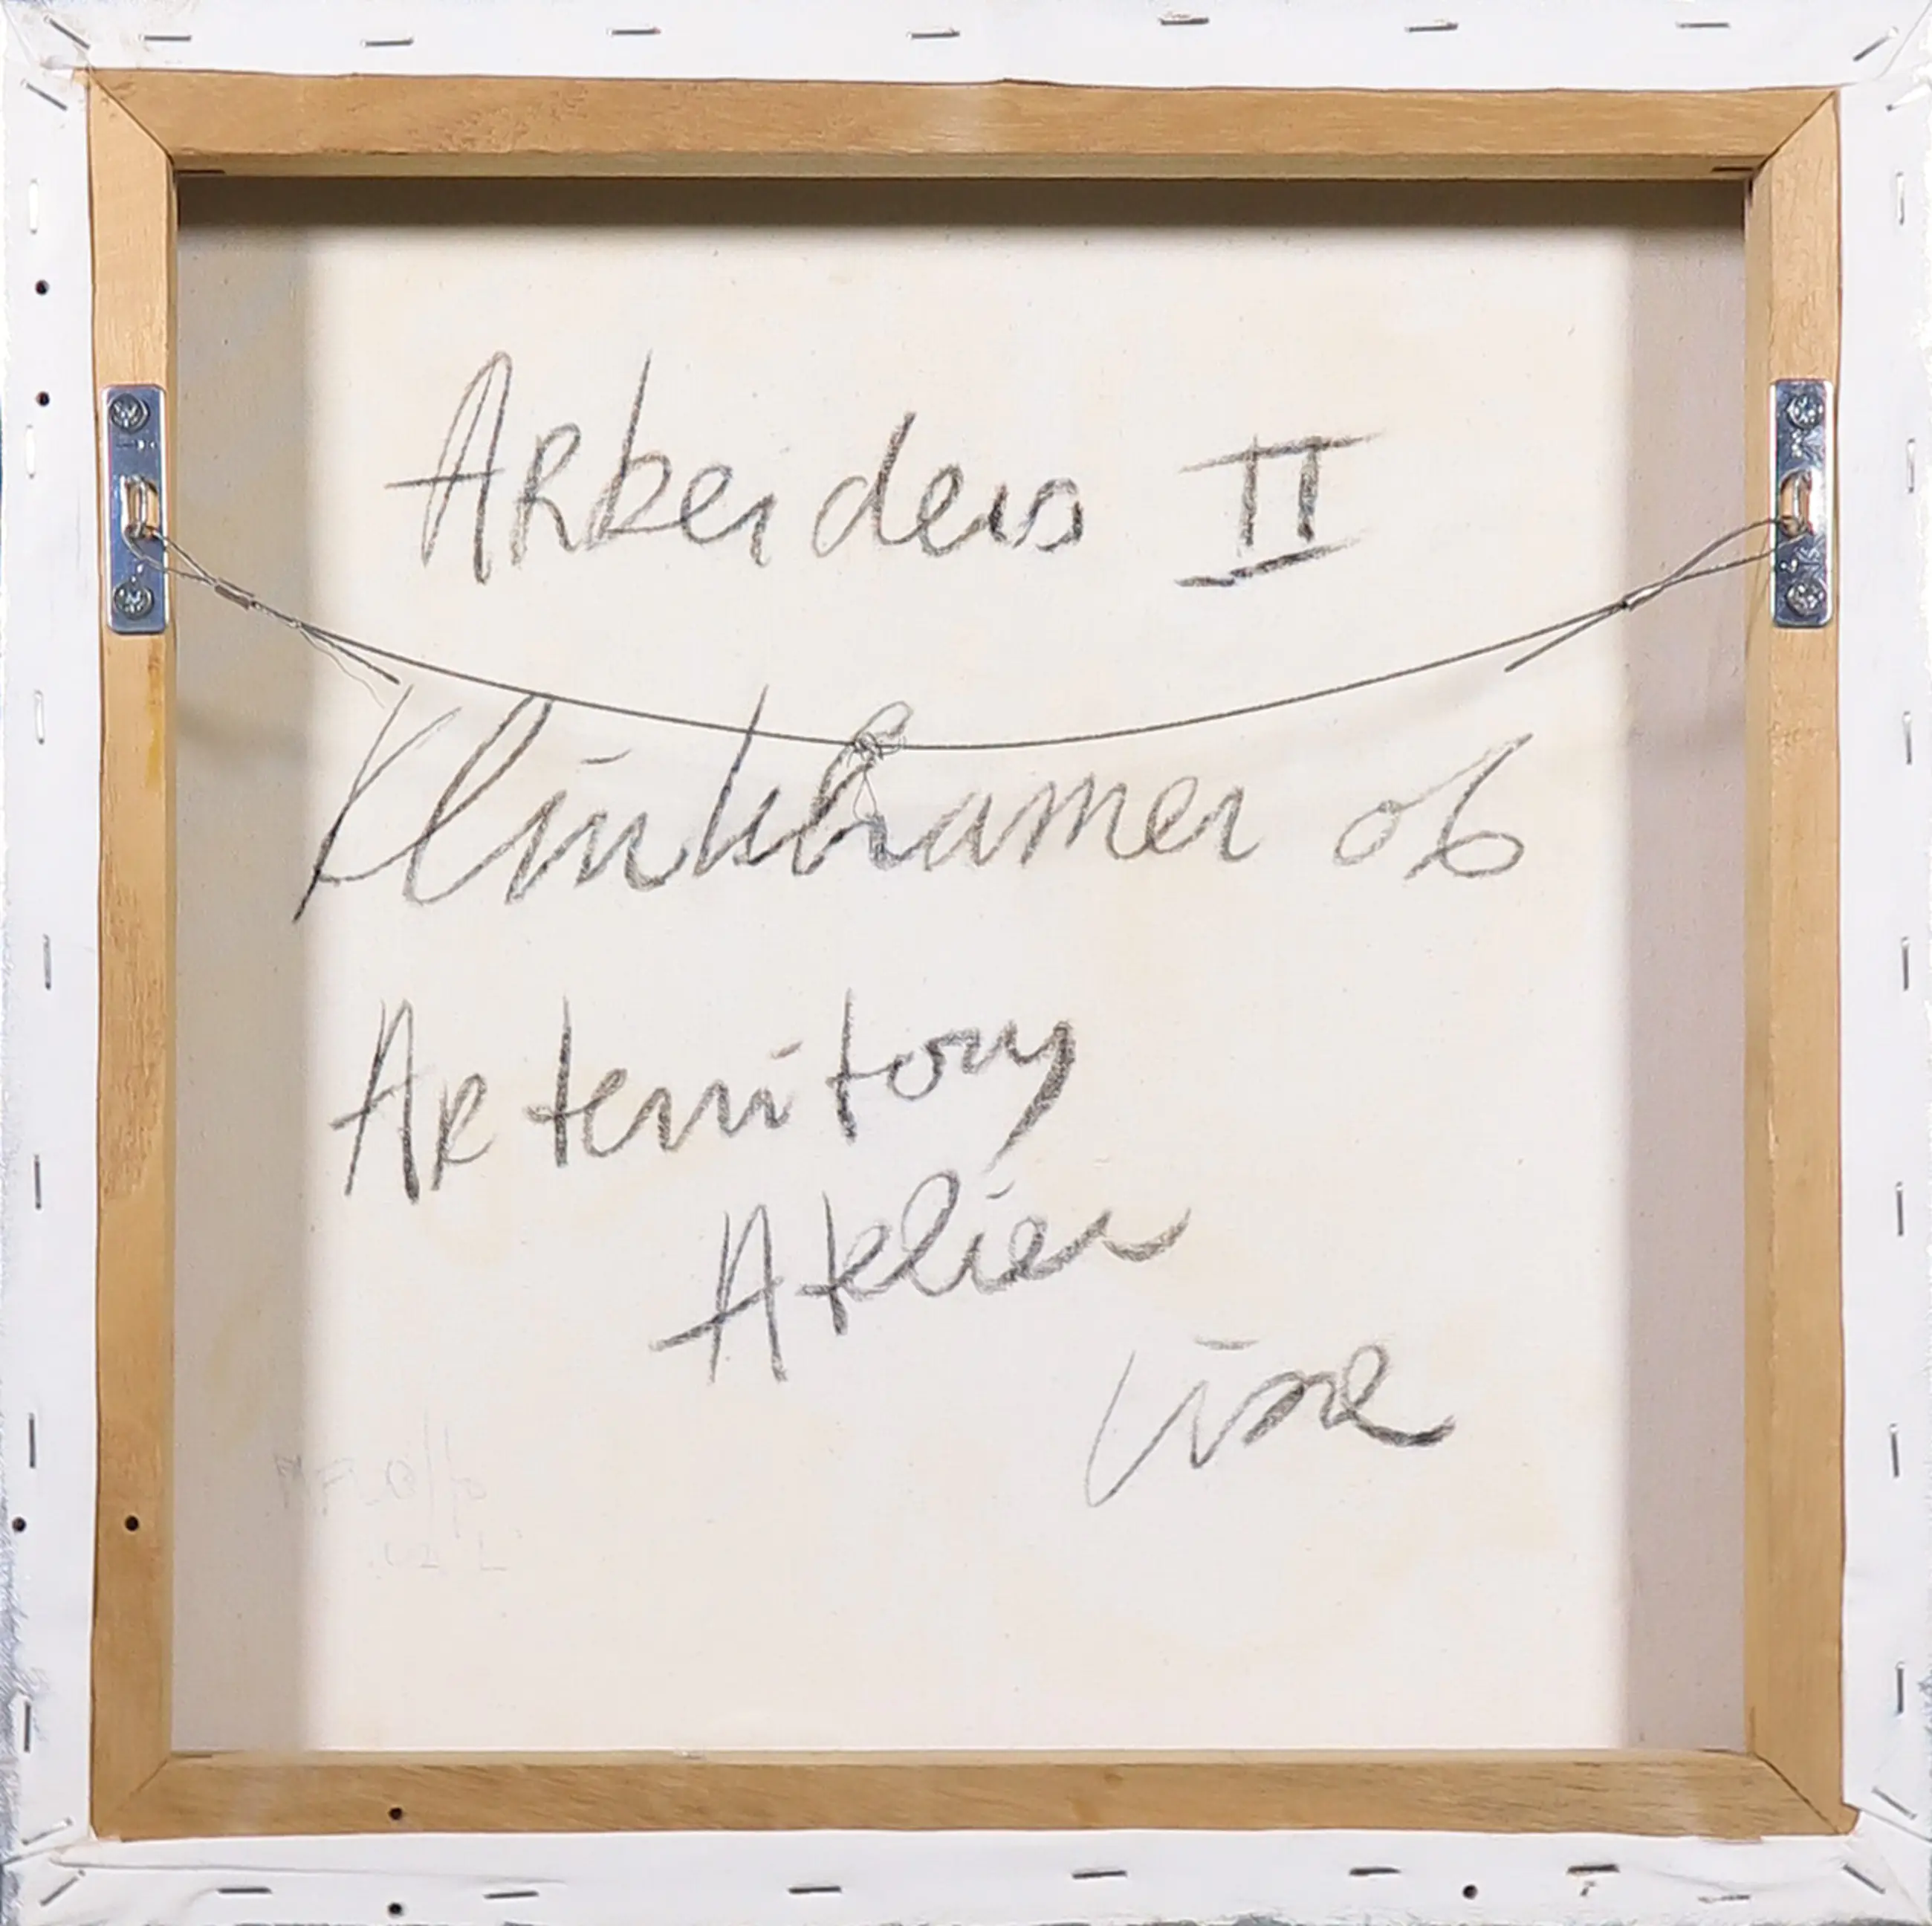 Arbeiders II
Klinkhamer 06
Arterritory
Atelier
Lise